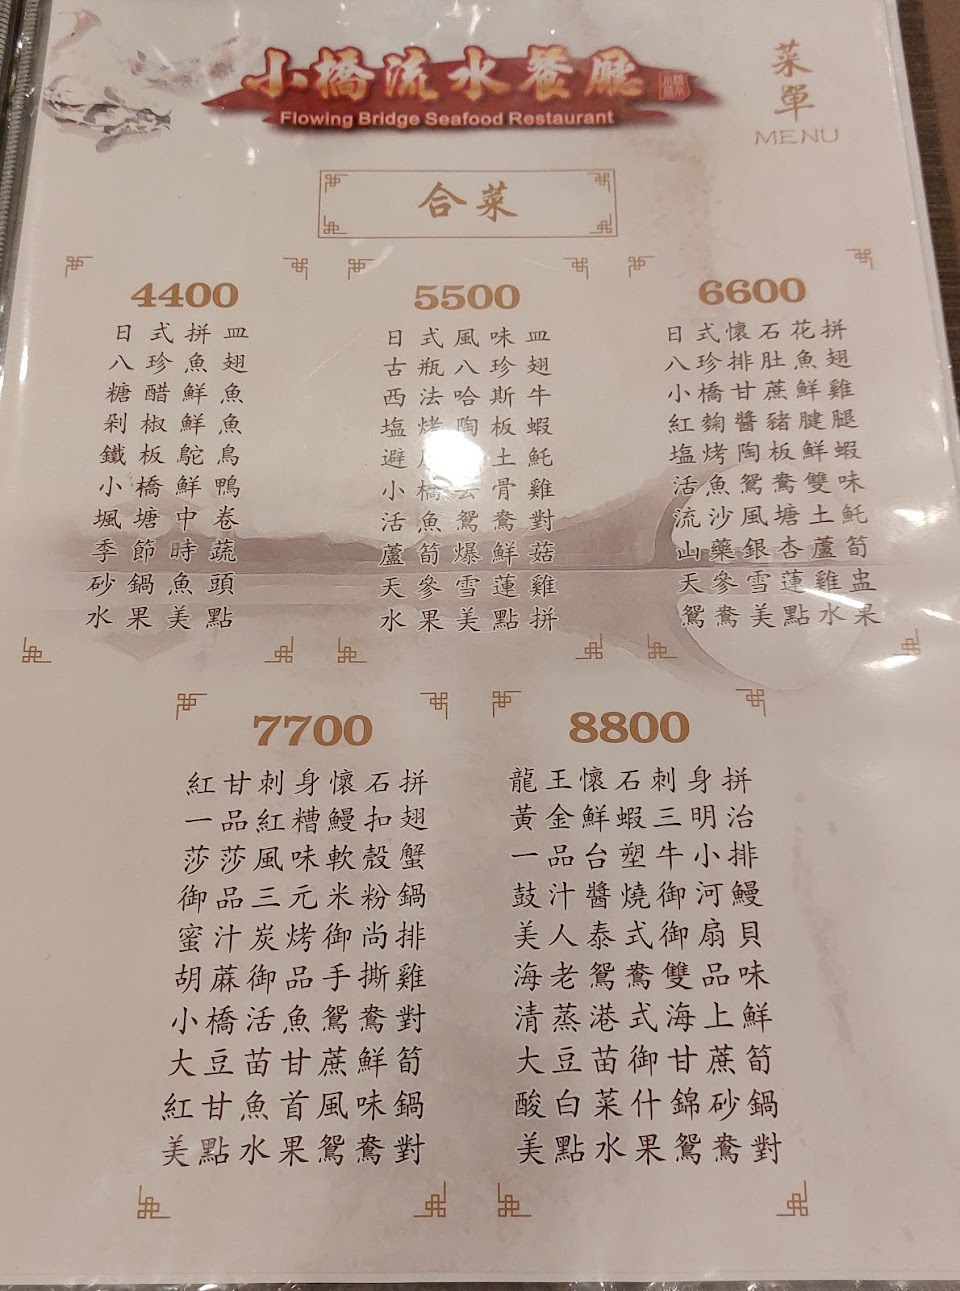 小橋流水餐廳
Flowing Bridge Seafood Restaurant
菜單
MENU
合菜
4400
日式拼皿
八珍魚翅
糖醋鮮魚
剁椒鮮魚
鐵板鴕鳥
小橋鮮鴨
楓塘中卷
季節時蔬
砂鍋魚頭
水果美點
5500
日式風味皿
古瓶八珍翅
西法哈斯牛
塩烤陶板蝦
避土魠
小橋骨雞
活魚鴛鴦對
蘆筍爆鮮菇
天參雪蓮雞
水果美點拼
6600
日式懷石花拼
八珍排肚魚翅
小橋甘蔗鮮雞
紅麴醬豬腱腿
塩烤陶板鮮蝦
活魚鴛鴦雙味
流沙風塘土魠
山藥銀杏蘆筍
天參雪蓮雞盅
鴛鴦美點水果
7700
紅甘刺身懷石拼
一品紅糟鰻扣翅
莎莎風味軟殼蟹
御品三元米粉鍋
蜜汁炭烤御尚排
胡蔴御品手撕雞
小橋活魚鴛鴦對
大豆苗甘蔗鮮筍
紅甘魚首風味鍋
美點水果鴛鴦對
8800
龍王懷石刺身拼
黃金鮮蝦三明治
一品台塑牛小排
鼓汁醬燒御河鰻
美人泰式御扇貝
海老鴛鴦雙品味
清蒸港式海上鮮
大豆苗御甘蔗筍
酸白菜什錦砂鍋
美點水果鴛鴦對